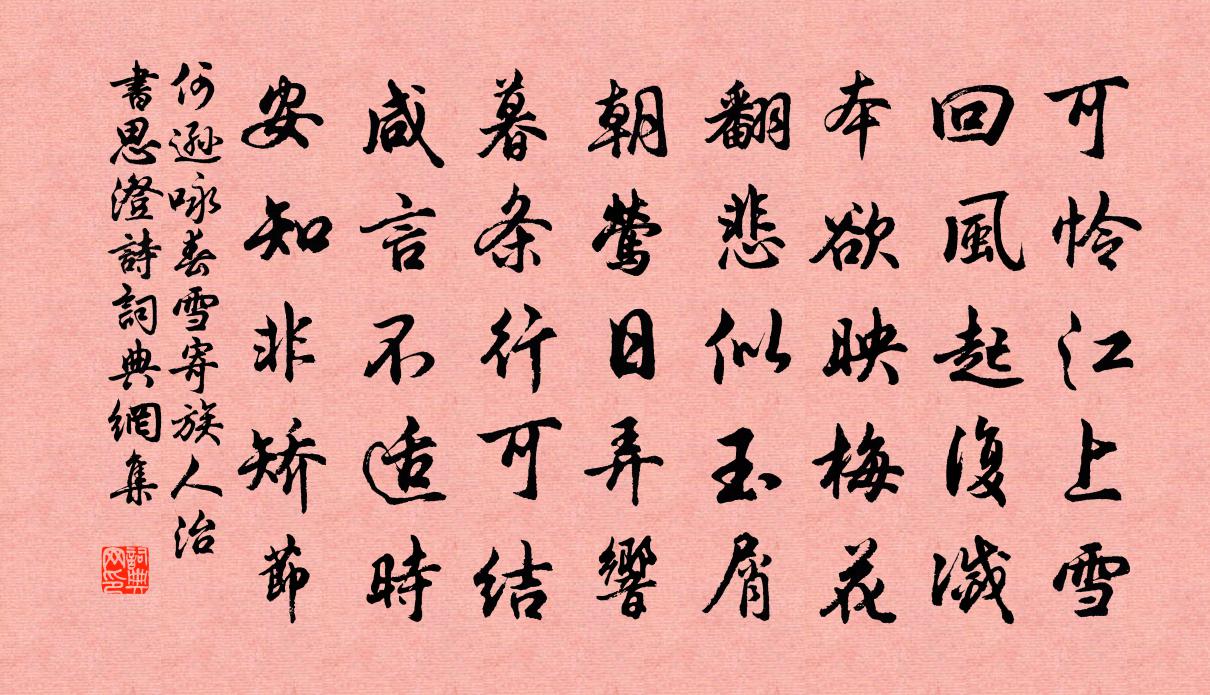 可怜江上雪
回風起復滅
本欲映梅花
翻悲似玉屑
朝鶯日弄響
暮条行可结
咸言不适時
安知非矫節
何遜咏春雪寄族人治
書思澄詩詞典網集
詞典
网印